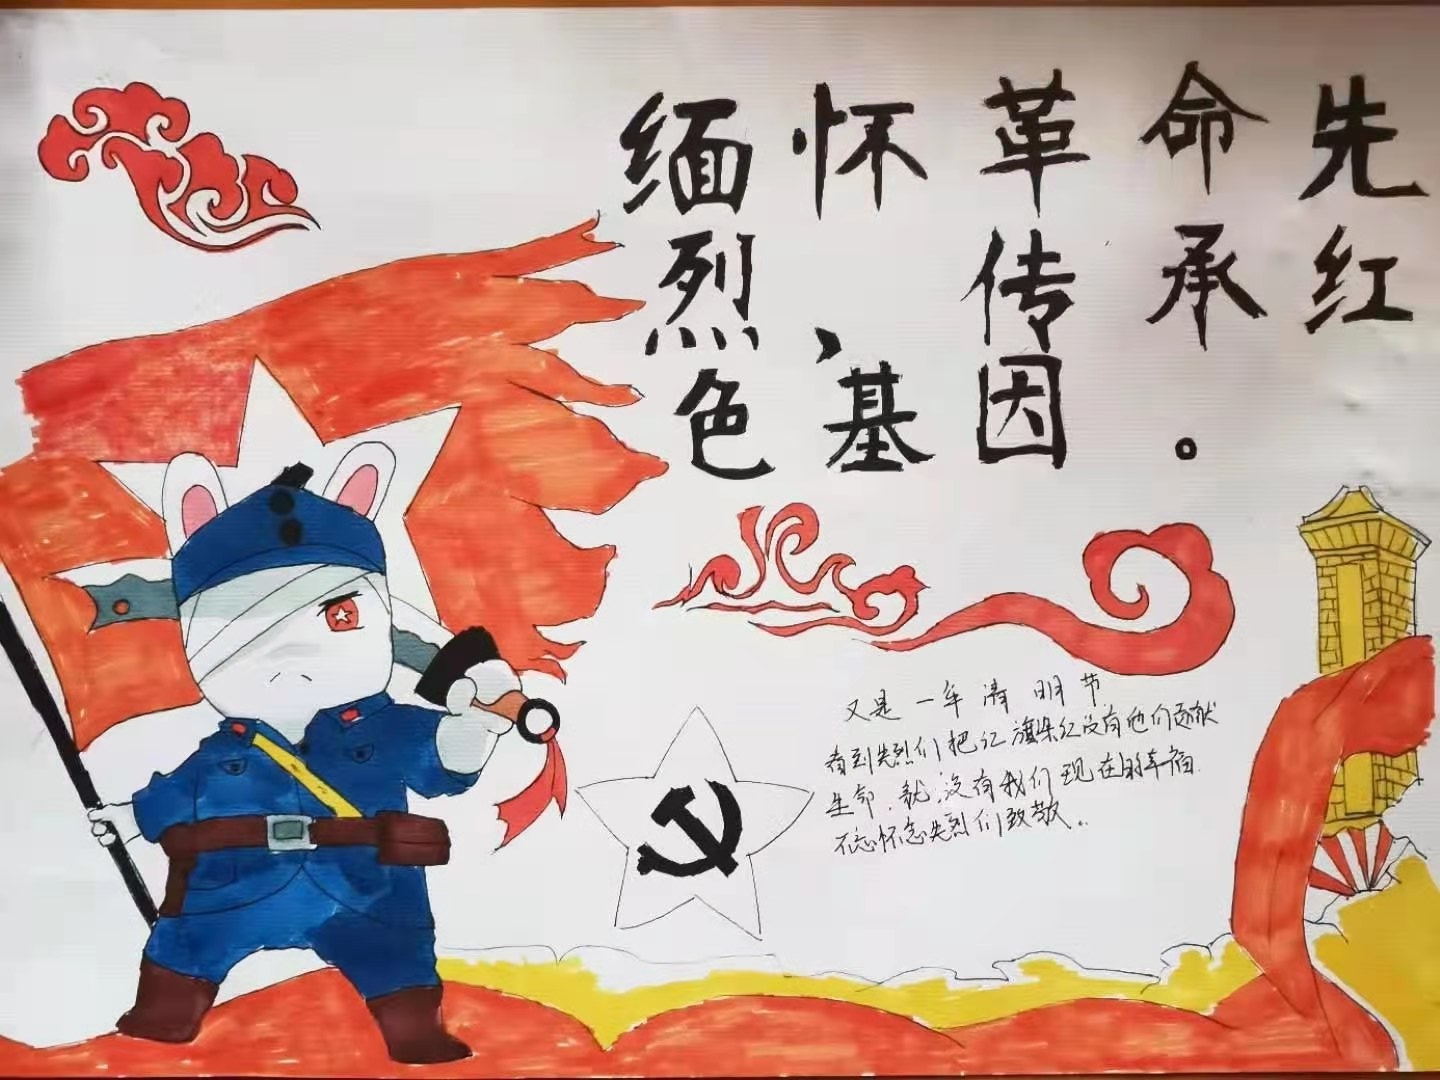 缅怀革命先
烈、传承红
色基因。
又是一年清明节
看到先烈们把红旗染红没有他们贡献
生命.就没有我们现在的幸福.
不忘怀念先烈们致敬..